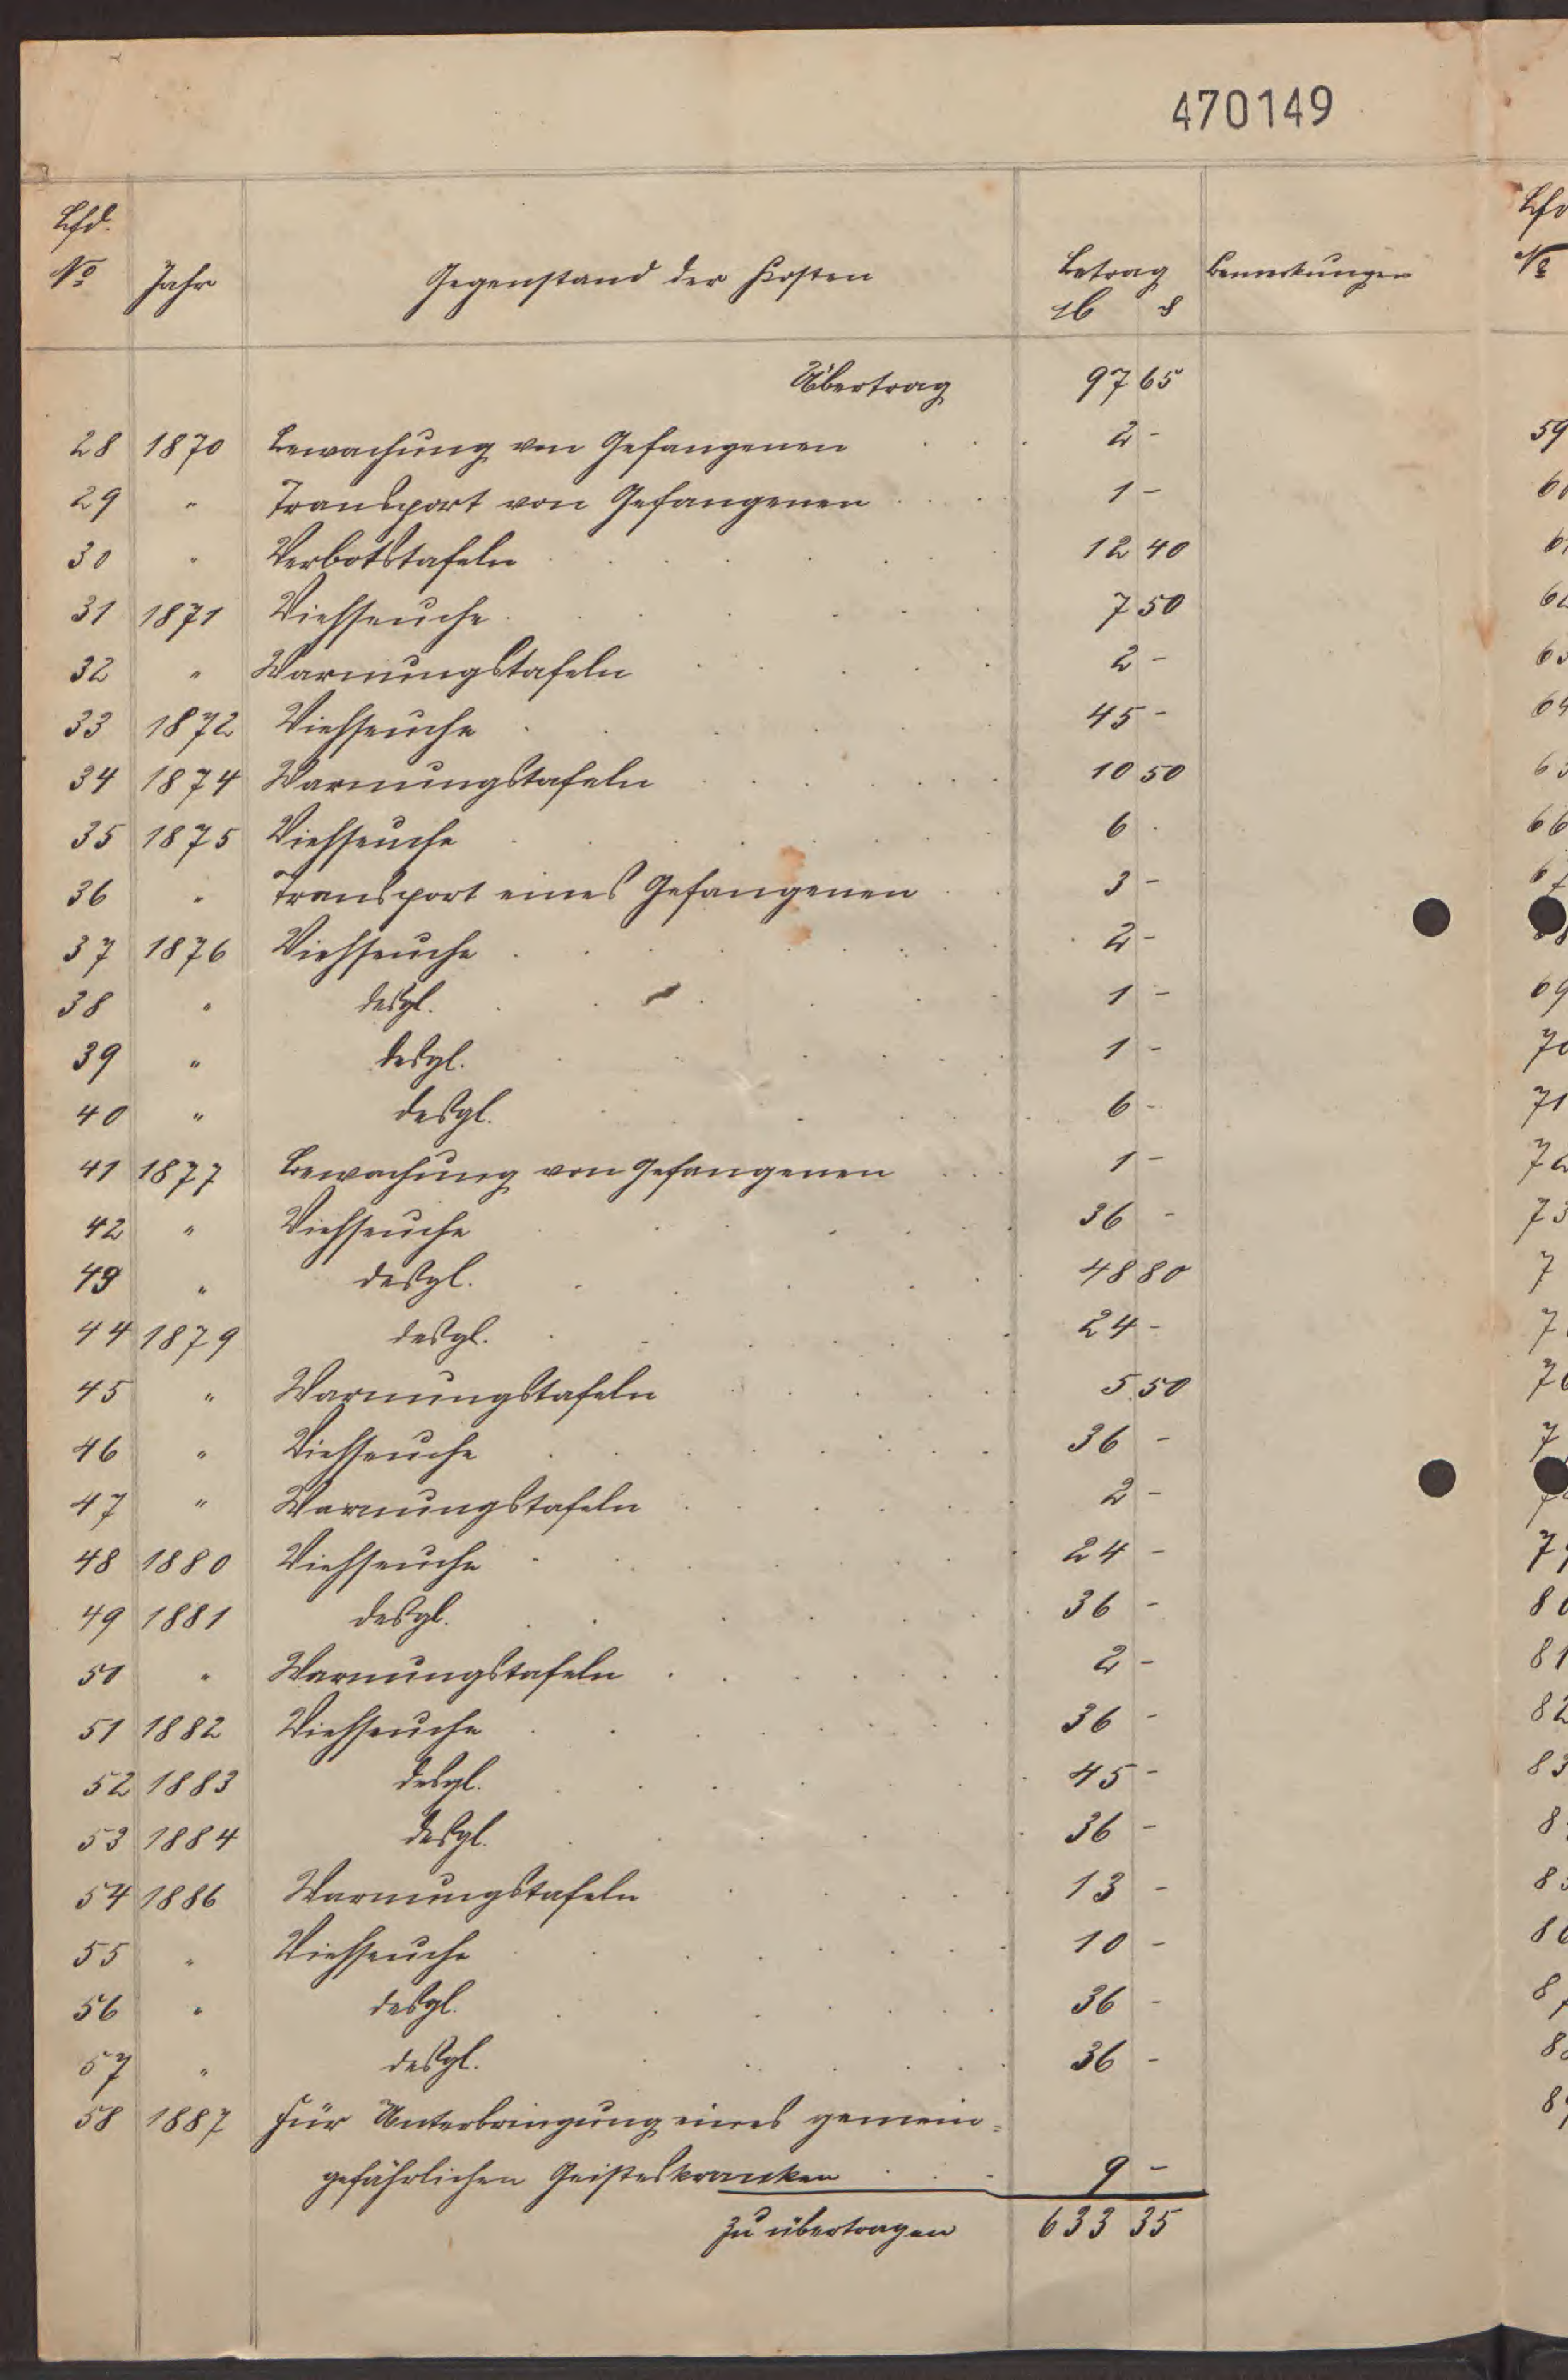 470149
Lfd.
No Jahr Gegenstand der Kosten Betrag Bemerkungen
M ₰
Übertrag 97 65
28 1870 Bewachung von Gefangenen . . . 2 -
29 " Transport von Gefangenen . . . . 1 -
30 " Verbotstafeln . . . . . . 12 40
31 1871 Viehseuche . . . . . 7 50
32 " Warnungstafeln . . . . . 2 -
33 1872 Viehseuche . . . . . . 45 -
34 1874 Warnungstafeln . . . . . . 10 50
35 1875 Viehseuche . . . . . . 6 .
36 " Transport eines Gefangenen . . 3 -
37 1876 Viehseuche . . . . . . . 2 -
38 " desgl. . . . . . . 1 -
39 " desgl. . . . . . . 1 -
40 " desgl. . . . . . 6 -
41 1877 Bewachung von Gefangenen . . . 1 -
42 " Viehseuche . . . . . . 36 -
43 " desgl. . . . . . . 48 80
44 1879 desgl. . . . . . . 24 -
45 " Warnungstafeln . . . . . 5 50
46 " Viehseuche . . . . . . . 36 -
47 " Warnungstafeln . . . . . . 2 -
48 1880 Viehseuche . . . . . . . 24 -
49 1881 desgl. . . . . . . . 36 -
50 " Warnungstafeln . . . . . . 2 -
51 1882 Viehseuche . . . . . . . 36 -
52 1883 desgl. . . . . . . . 45 -
53 1884 desgl. . . . . . . 36 -
54 1886 Warnungstafeln . . . . . 13 -
55 " Viehseuche . . . . . . . 10 -
56 " desgl. . . . . . . . 36 -
57 " desgl. . . . . . . 36 -
58 1887 Für Unterbringung eines gemein=
gefährlichen Geisteskranken . . . 9 -
zu übertragen 633 35